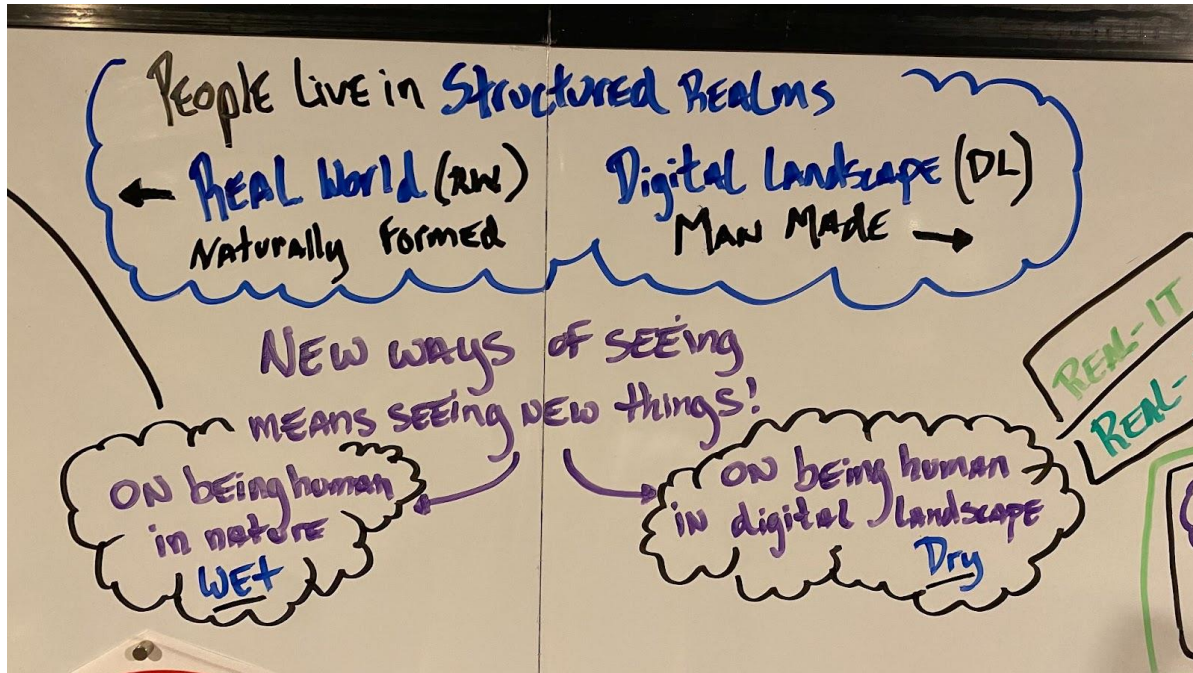 People Live in Structured Realms
← Real World (RW)
Naturally Formed
Digital Landscape (DL)
Man Made →
New ways of seeing
means seeing new things!
On being human
in nature
Wet
On being human
in digital landscape
Dry
Real-IT
Real-